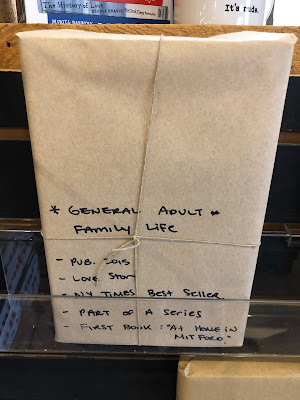 The History of Love
It's rude.
* GENERAL ADULT *
FAMILY LIFE
- PUB. 2015
- LOVE STORY
- NY TIMES BEST SELLER
- PART OF A SERIES
- FIRST BOOK: "AT HOME IN
MITFORD"